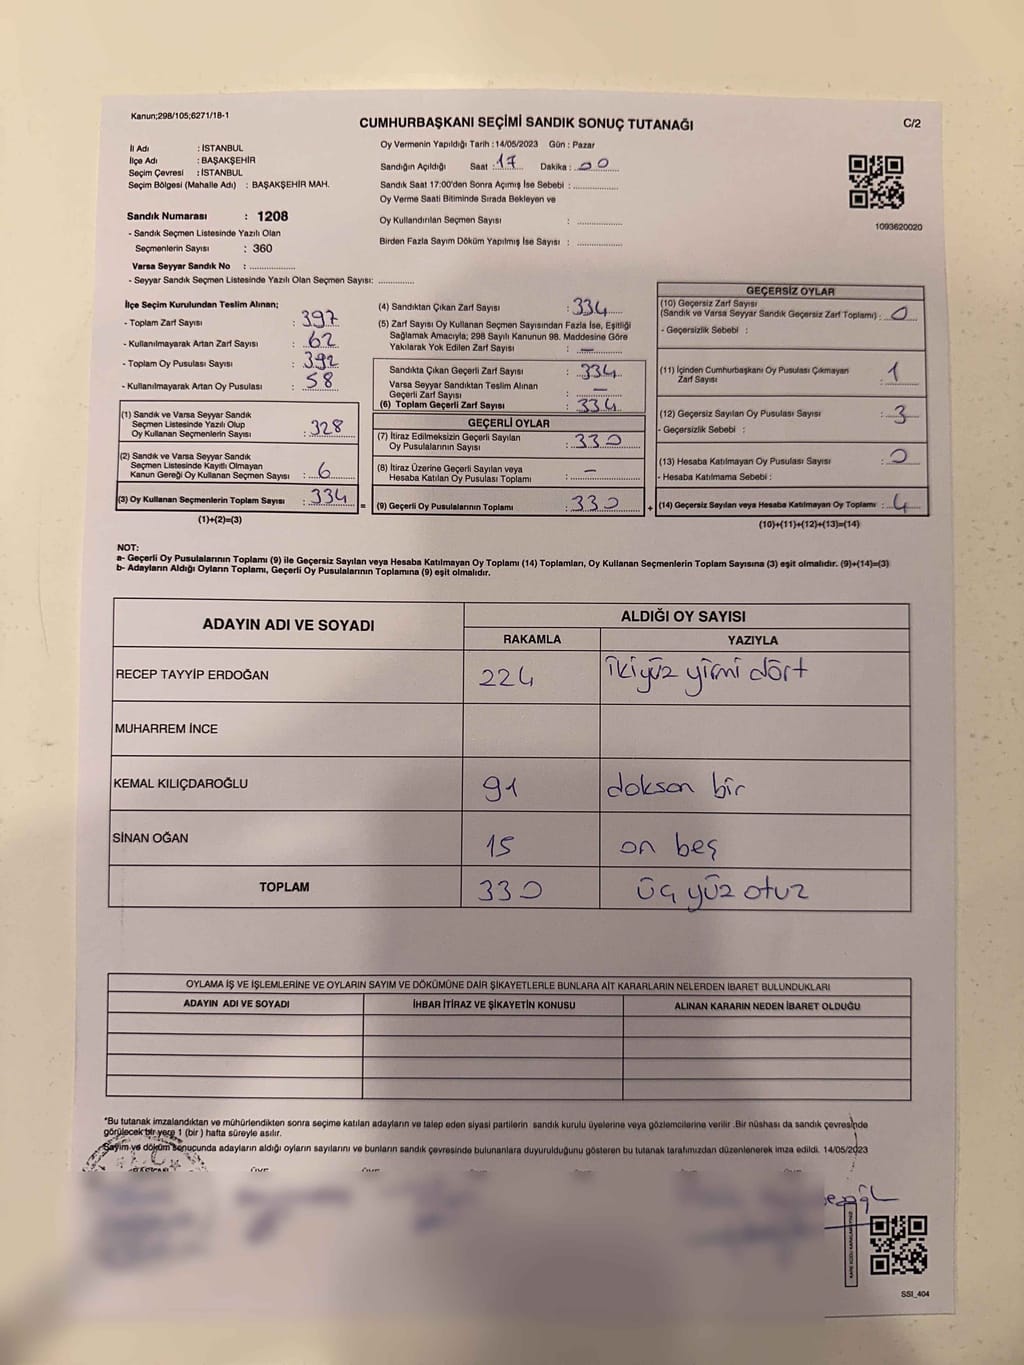 Kanun;298/105;6271/18-1
CUMHURBAŞKANI SEÇİMİ SANDIK SONUÇ TUTANAĞI
C/2
İl Adı : İSTANBUL
İlçe Adı : BAŞAKŞEHİR
Seçim Çevresi : İSTANBUL
Seçim Bölgesi (Mahalle Adı) : BAŞAKŞEHİR MAH.
Sandık Numarası : 1208
- Sandık Seçmen Listesinde Yazılı Olan
Seçmenlerin Sayısı : 360
Varsa Seyyar Sandık No : ................
- Seyyar Sandık Seçmen Listesinde Yazılı Olan Seçmen Sayısı: ............
Oy Vermenin Yapıldığı Tarih : 14/05/2023 Gün : Pazar
Sandığın Açıldığı Saat : 17 Dakika : 00
Sandık Saat 17:00'den Sonra Açımış İse Sebebi : ................
Oy Verme Saati Bitiminde Sırada Bekleyen ve
Oy Kullandırılan Seçmen Sayısı : ................
Birden Fazla Sayım Döküm Yapılmış İse Sayısı : ................
1093620020
İlçe Seçim Kurulundan Teslim Alınan;
- Toplam Zarf Sayısı : 397
- Kullanılmayarak Artan Zarf Sayısı : 62
- Toplam Oy Pusulası Sayısı : 392
- Kullanılmayarak Artan Oy Pusulası : 58
(1) Sandık ve Varsa Seyyar Sandık
Seçmen Listesinde Yazılı Olup
Oy Kullanan Seçmenlerin Sayısı : 328
(2) Sandık ve Varsa Seyyar Sandık
Seçmen Listesinde Kayıtlı Olmayan
Kanun Gereği Oy Kullanan Seçmen Sayısı : 6
(3) Oy Kullanan Seçmenlerin Toplam Sayısı : 334
(1)+(2)=(3)
=
(4) Sandıktan Çıkan Zarf Sayısı : 334
(5) Zarf Sayısı Oy Kullanan Seçmen Sayısından Fazla İse, Eşitliği
Sağlamak Amacıyla; 298 Sayılı Kanunun 98. Maddesine Göre
Yakılarak Yok Edilen Zarf Sayısı : —
Sandıkta Çıkan Geçerli Zarf Sayısı : 334
Varsa Seyyar Sandıktan Teslim Alınan
Geçerli Zarf Sayısı : —
(6) Toplam Geçerli Zarf Sayısı : 334
GEÇERLİ OYLAR
(7) İtiraz Edilmeksizin Geçerli Sayılan
Oy Pusulalarının Sayısı : 330
(8) İtiraz Üzerine Geçerli Sayılan veya
Hesaba Katılan Oy Pusulası Toplamı : —
(9) Geçerli Oy Pusulalarının Toplamı : 330
+
GEÇERSİZ OYLAR
(10) Geçersiz Zarf Sayısı
(Sandık ve Varsa Seyyar Sandık Geçersiz Zarf Toplamı) : 0
- Geçersizlik Sebebi :
(11) İçinden Cumhurbaşkanı Oy Pusulası Çıkmayan
Zarf Sayısı : 1
(12) Geçersiz Sayılan Oy Pusulası Sayısı : 3
- Geçersizlik Sebebi :
(13) Hesaba Katılmayan Oy Pusulası Sayısı : 0
- Hesaba Katılmama Sebebi :
(14) Geçersiz Sayılan veya Hesaba Katılmayan Oy Toplamı : 4
(10)+(11)+(12)+(13)=(14)
NOT:
a- Geçerli Oy Pusulalarının Toplamı (9) ile Geçersiz Sayılan veya Hesaba Katılmayan Oy Toplamı (14) Toplamları, Oy Kullanan Seçmenlerin Toplam Sayısına (3) eşit olmalıdır. (9)+(14)=(3)
b- Adayların Aldığı Oyların Toplamı, Geçerli Oy Pusulalarının Toplamına (9) eşit olmalıdır.
ADAYIN ADI VE SOYADI
ALDIĞI OY SAYISI
RAKAMLA YAZIYLA
RECEP TAYYİP ERDOĞAN 224 ikiyüz yirmi dört
MUHARREM İNCE
KEMAL KILIÇDAROĞLU 91 doksan bir
SİNAN OĞAN 15 on beş
TOPLAM 330 üç yüz otuz
OYLAMA İŞ VE İŞLEMLERİNE VE OYLARIN SAYIM VE DÖKÜMÜNE DAİR ŞİKAYETLERLE BUNLARA AİT KARARLARIN NELERDEN İBARET BULUNDUKLARI
ADAYIN ADI VE SOYADI İHBAR İTİRAZ VE ŞİKAYETİN KONUSU ALINAN KARARIN NEDEN İBARET OLDUĞU
*Bu tutanak imzalandıktan ve mühürlendikten sonra seçime katılan adayların ve talep eden siyasi partilerin sandık kurulu üyelerine veya gözlemcilerine verilir .Bir nüshası da sandık çevresinde
görülecek bir yere 1 (bir ) hafta süreyle asılır.
Sayim ve döküm sonucunda adayların aldığı oyların sayılarını ve bunların sandık çevresinde bulunanlara duyurulduğunu gösteren bu tutanak tarafımızdan düzenlenerek imza edildi. 14/05/2023
SSI_404